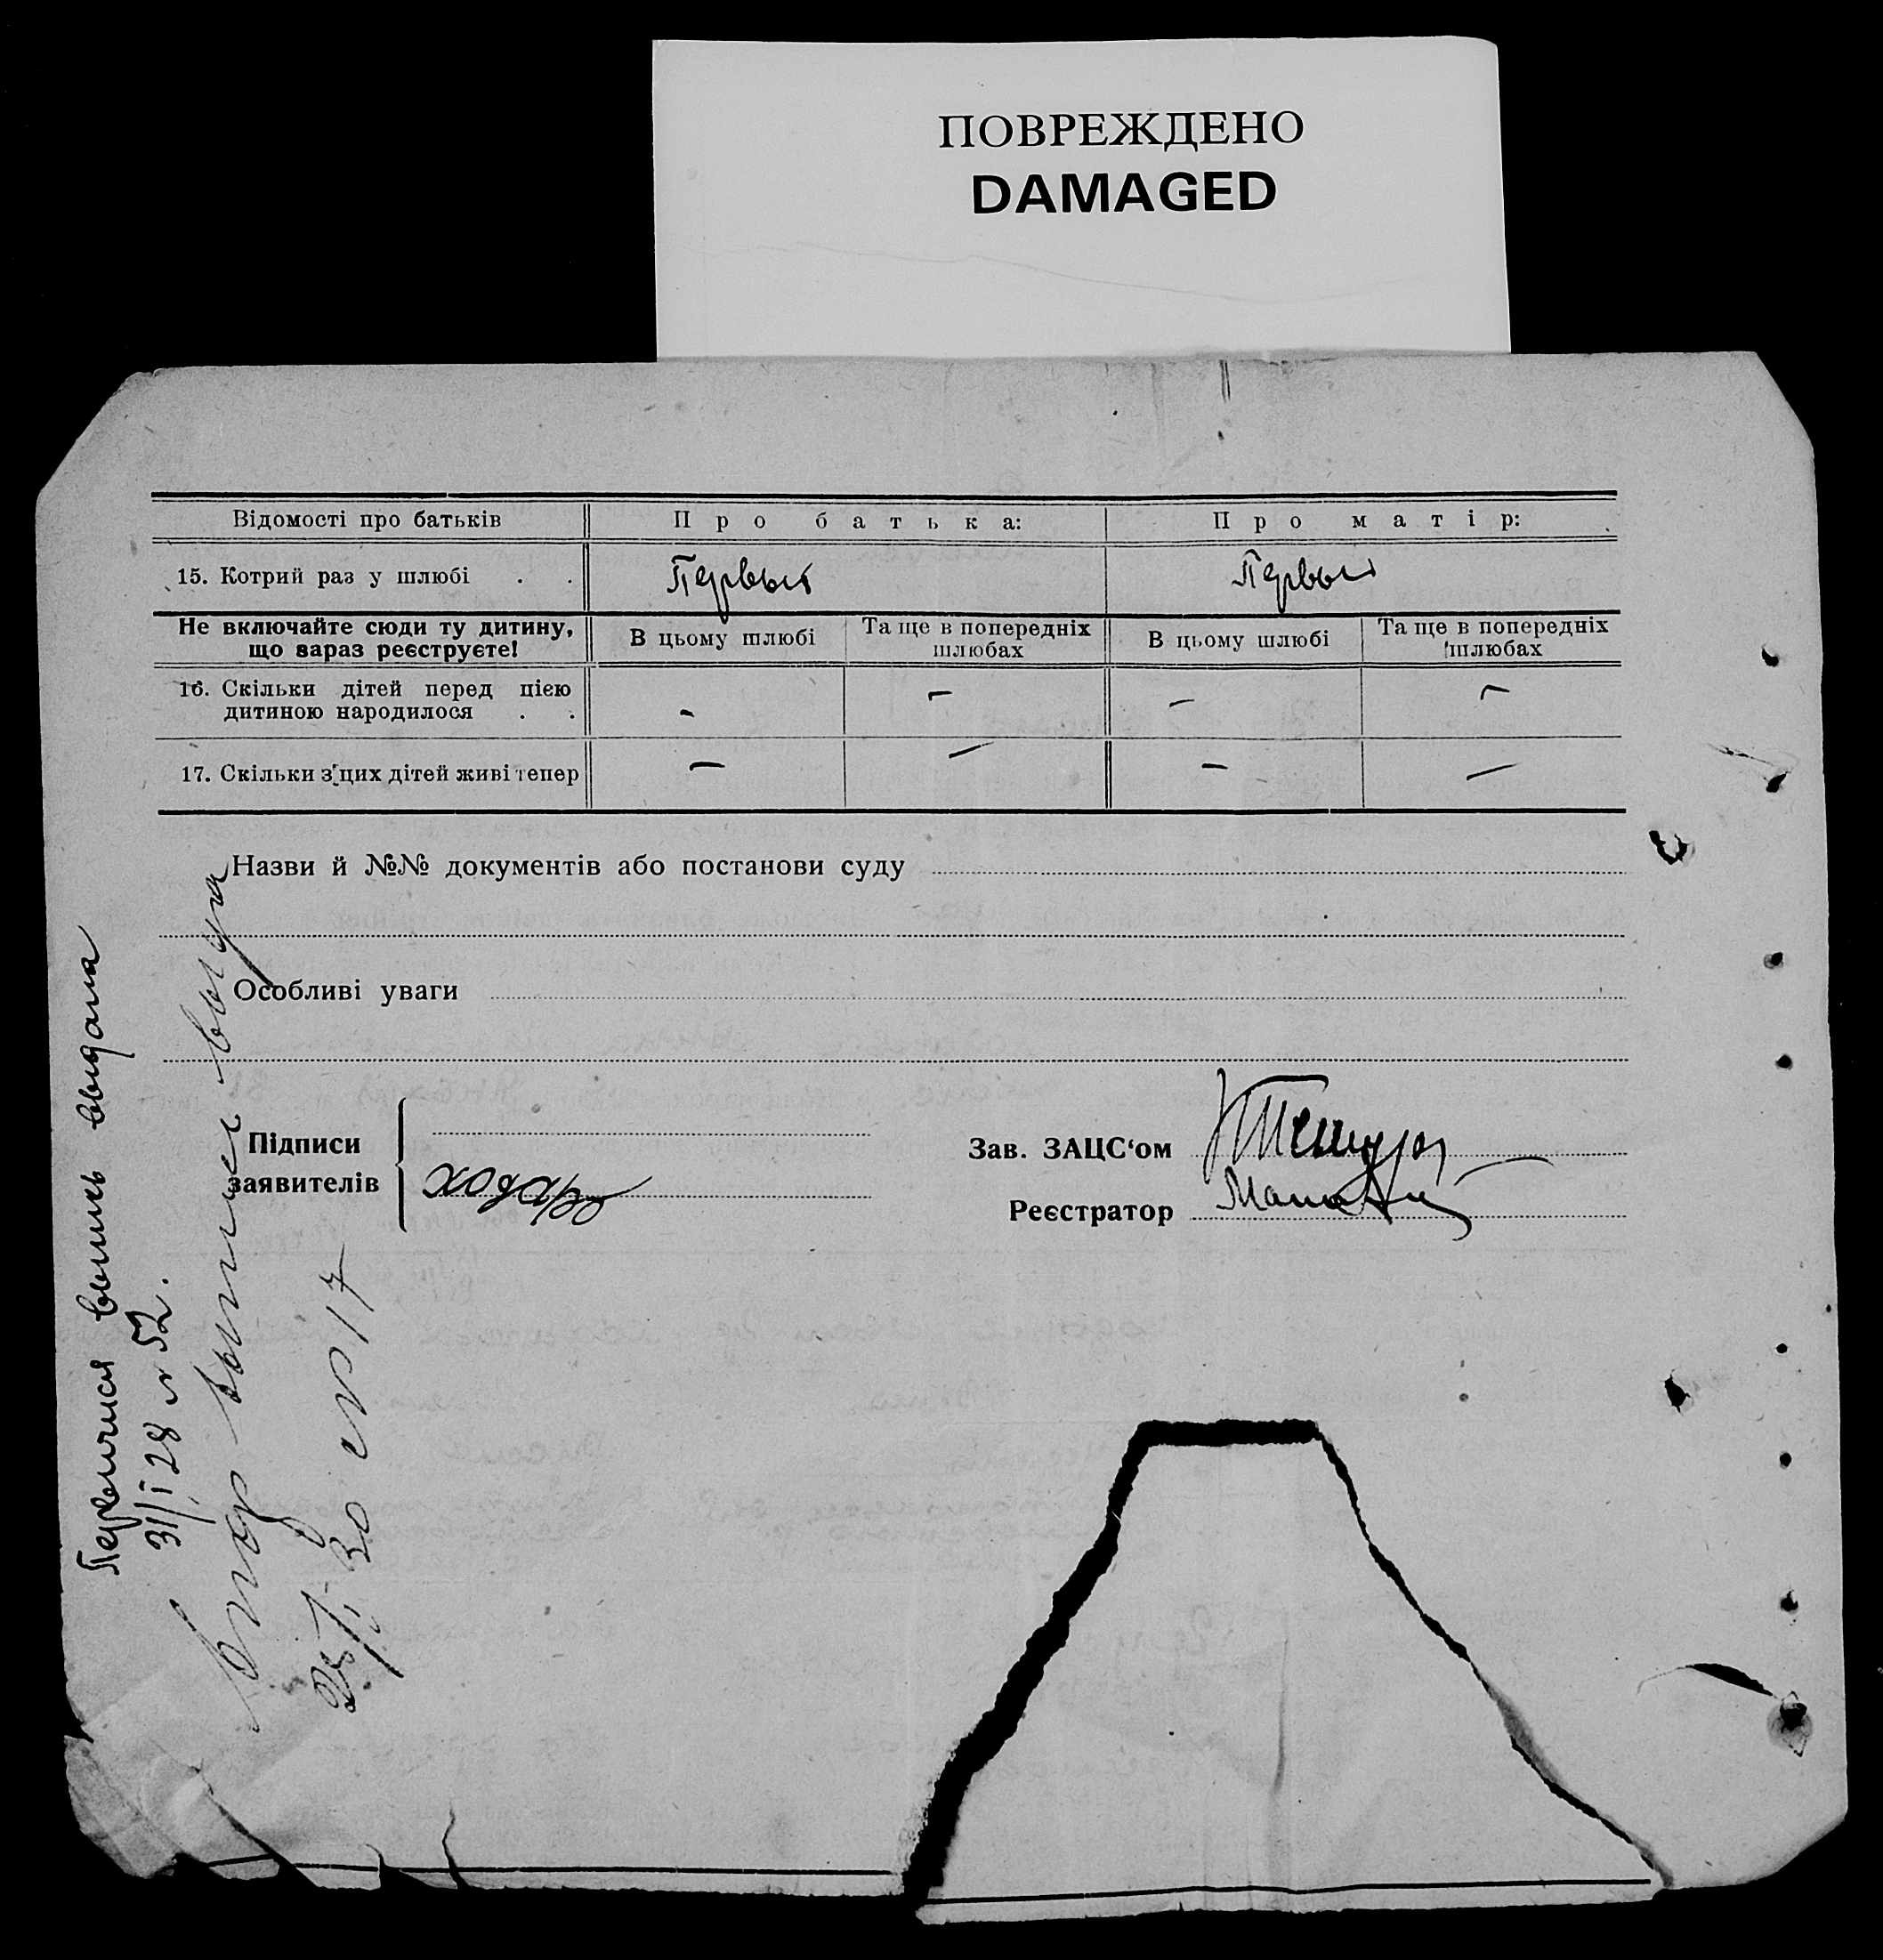 ПОВРЕЖДЕНО
DAMAGED
Відомості про батьків Про батька: Про матір:
15. Котрий раз у шлюбі . . Первый Первый
Не включайте сюди ту дитину, що зараз реєструєте! В цьому шлюбі Та ще в попередніх шлюбах В цьому шлюбі Та ще в попередніх шлюбах
16. Скільки дітей перед цією дитиною народилося . . – – – –
17. Скільки з цих дітей живі тепер – – – –
Назви й №№ документів або постанови суду
Особливі уваги
Підписи заявителів
Ходаро
Зав. ЗАЦС‘ом
Реєстратор
Первичная выпись выдана
31/I 28 № 52.
выпись выда
30 № 17